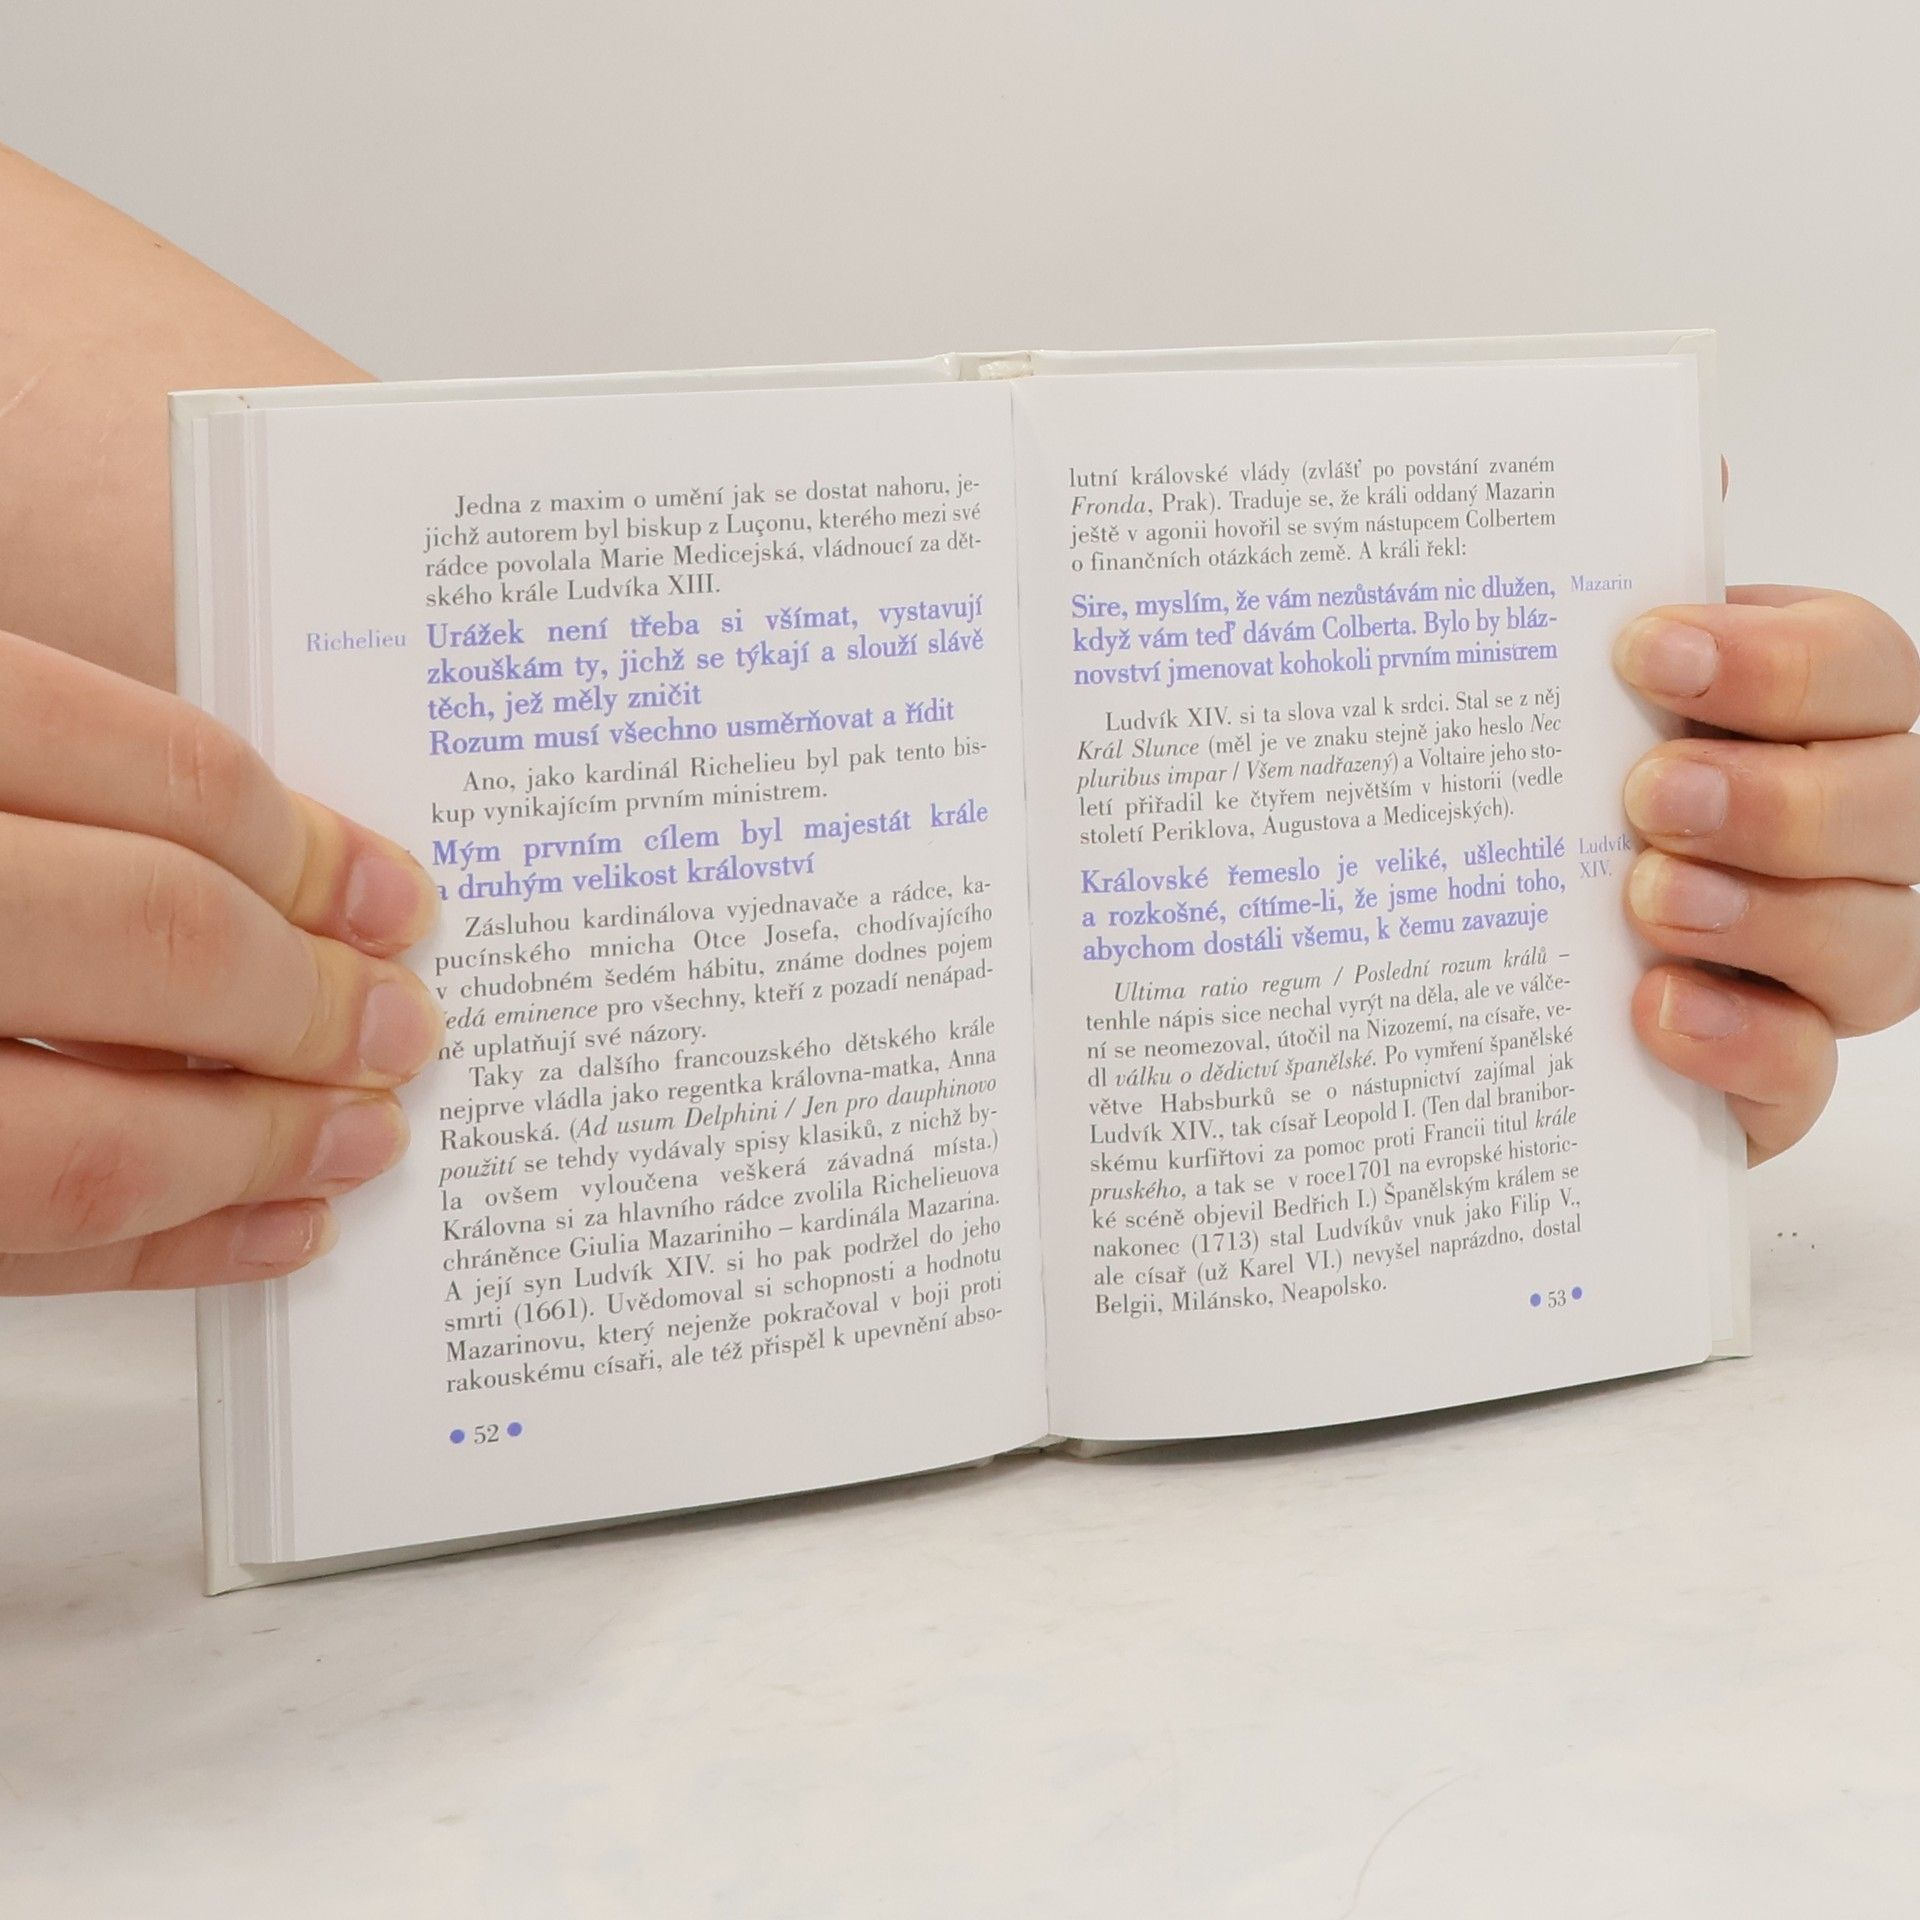 Jedna z maxim o umění jak se dostat nahoru, je-
jichž autorem byl biskup z Luçonu, kterého mezi své
rádce povolala Marie Medicejská, vládnoucí za dět-
ského krále Ludvíka XIII.
Richelieu
Urážek není třeba si všímat, vystavují
zkouškám ty, jichž se týkají a slouží slávě
těch, jež měly zničit
Rozum musí všechno usměrňovat a řídit
Ano, jako kardinál Richelieu byl pak tento bis-
kup vynikajícím prvním ministrem.
Mým prvním cílem byl majestát krále
a druhým velikost království
Zásluhou kardinálova vyjednavače a rádce, ka-
pucínského mnicha Otce Josefa, chodívajícího
v chudobném šedém hábitu, známe dodnes pojem
edá eminence pro všechny, kteří z pozadí nenápad-
ně uplatňují své názory.
Taky za dalšího francouzského dětského krále
nejprve vládla jako regentka královna-matka, Anna
Rakouská. (Ad usum Delphini / Jen pro dauphinovo
použití se tehdy vydávaly spisy klasiků, z nichž by-
la ovšem vyloučena veškerá závadná místa.)
Královna si za hlavního rádce zvolila Richelieuova
chráněnce Giulia Mazariniho – kardinála Mazarina.
A její syn Ludvík XIV. si ho pak podržel do jeho
smrti (1661). Uvědomoval si schopnosti a hodnotu
Mazarinovu, který nejenže pokračoval v boji proti
rakouskému císaři, ale též přispěl k upevnění abso-
52
lutní královské vlády (zvlášť po povstání zvaném
Fronda, Prak). Traduje se, že králi oddaný Mazarin
ještě v agonii hovořil se svým nástupcem Colbertem
o finančních otázkách země. A králi řekl:
Sire, myslím, že vám nezůstávám nic dlužen,
když vám teď dávám Colberta. Bylo by bláz-
novství jmenovat kohokoli prvním ministrem
Mazarin
Ludvík XIV. si ta slova vzal k srdci. Stal se z něj
Král Slunce (měl je ve znaku stejně jako heslo Nec
pluribus impar / Všem nadřazený) a Voltaire jeho sto-
letí přiřadil ke čtyřem největším v historii (vedle
století Periklova, Augustova a Medicejských).
Královské řemeslo je veliké, ušlechtilé
a rozkošné, cítíme-li, že jsme hodni toho,
abychom dostáli všemu, k čemu zavazuje
Ludvík
XIV.
Ultima ratio regum / Poslední rozum králů –
tenhle nápis sice nechal vyrýt na děla, ale ve válče-
ní se neomezoval, útočil na Nizozemí, na císaře, ve-
dl válku o dědictví španělské. Po vymření španělské
větve Habsburků se o nástupnictví zajímal jak
Ludvík XIV., tak císař Leopold I. (Ten dal branibor-
skému kurfiřtovi za pomoc proti Francii titul krále
pruského, a tak se v roce1701 na evropské historic-
ké scéně objevil Bedřich I.) Španělským králem se
nakonec (1713) stal Ludvíkův vnuk jako Filip V.,
ale císař (už Karel VI.) nevyšel naprázdno, dostal
Belgii, Milánsko, Neapolsko.
53